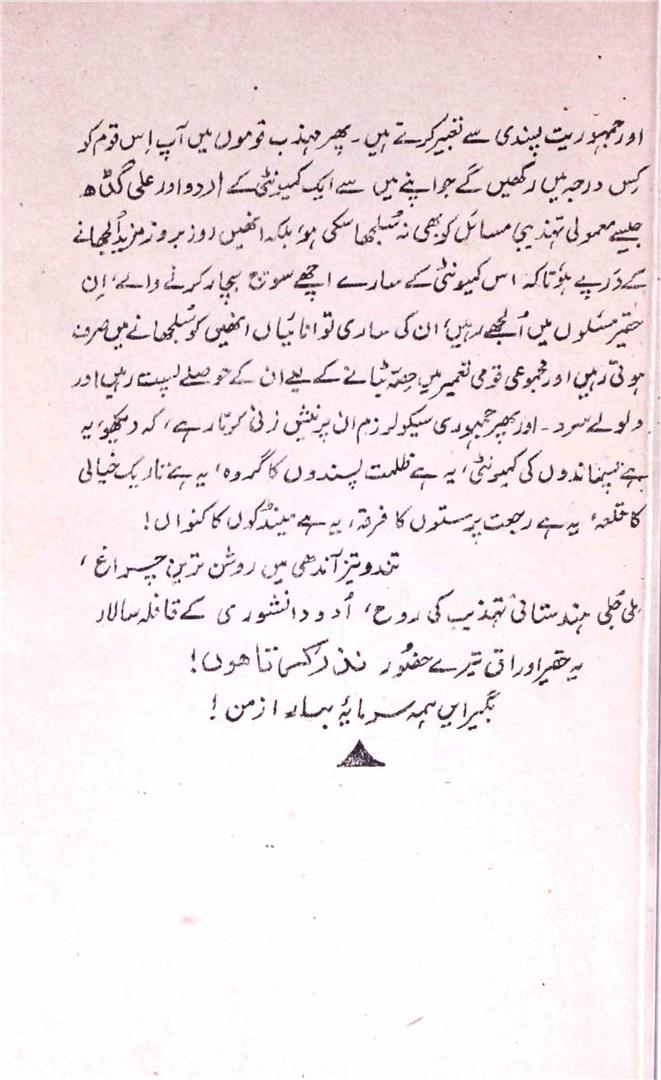 اور جمہوریت پسندی سے تعبیر کرتے ہیں۔ پھر مہذب قوموں میں آپ اِس قوم کو
کِس درجہ میں رکھیں گے جو اپنے میں سے ایک کمیونٹی کے اردو اور علی گڈھ
جیسے معمولی تہذیبی مسائل کو بھی نہ سُلجھا سکی ہو، بلکہ انھیں روز بروز مزید اُلجھانے
کے دَرپے ہو، تاکہ اس کمیونٹی کے سارے اچھے سوچ بچار کرنے والے، اِن
حقیر مسئلوں میں اُلجھے رہیں، ان کی ساری توانائیاں انھیں کو سُلجھانے میں صرف
ہوتی رہیں اور مجموعی قومی تعمیر میں حصّہ بٹانے کے لیے ان کے حوصلے پست رہیں اور
ولولے سرد۔ اور پھر جمہوری سیکولرزم ان پر نیش زنی کرتا رہے، کہ دیکھو، یہ
ہے پسماندوں کی کمیونٹی، یہ ہے ظلمت پسندوں کا گروہ، یہ ہے تاریک خیالی
کا قلعہ، یہ ہے رجعت پرستوں کا فرقہ، یہ ہے مینڈکوں کا کنواں!
تند و تیز آندھی میں روشن ترین چراغ،
ملی جُلی ہندستانی تہذیب کی روح، اُردو دانشوری کے قافلہ سالار
یہ حقیر اوراق تیرے حضُور نذر کرتا ہوں!
بگیر ایں ہمہ سرمایۂ بہار از من!